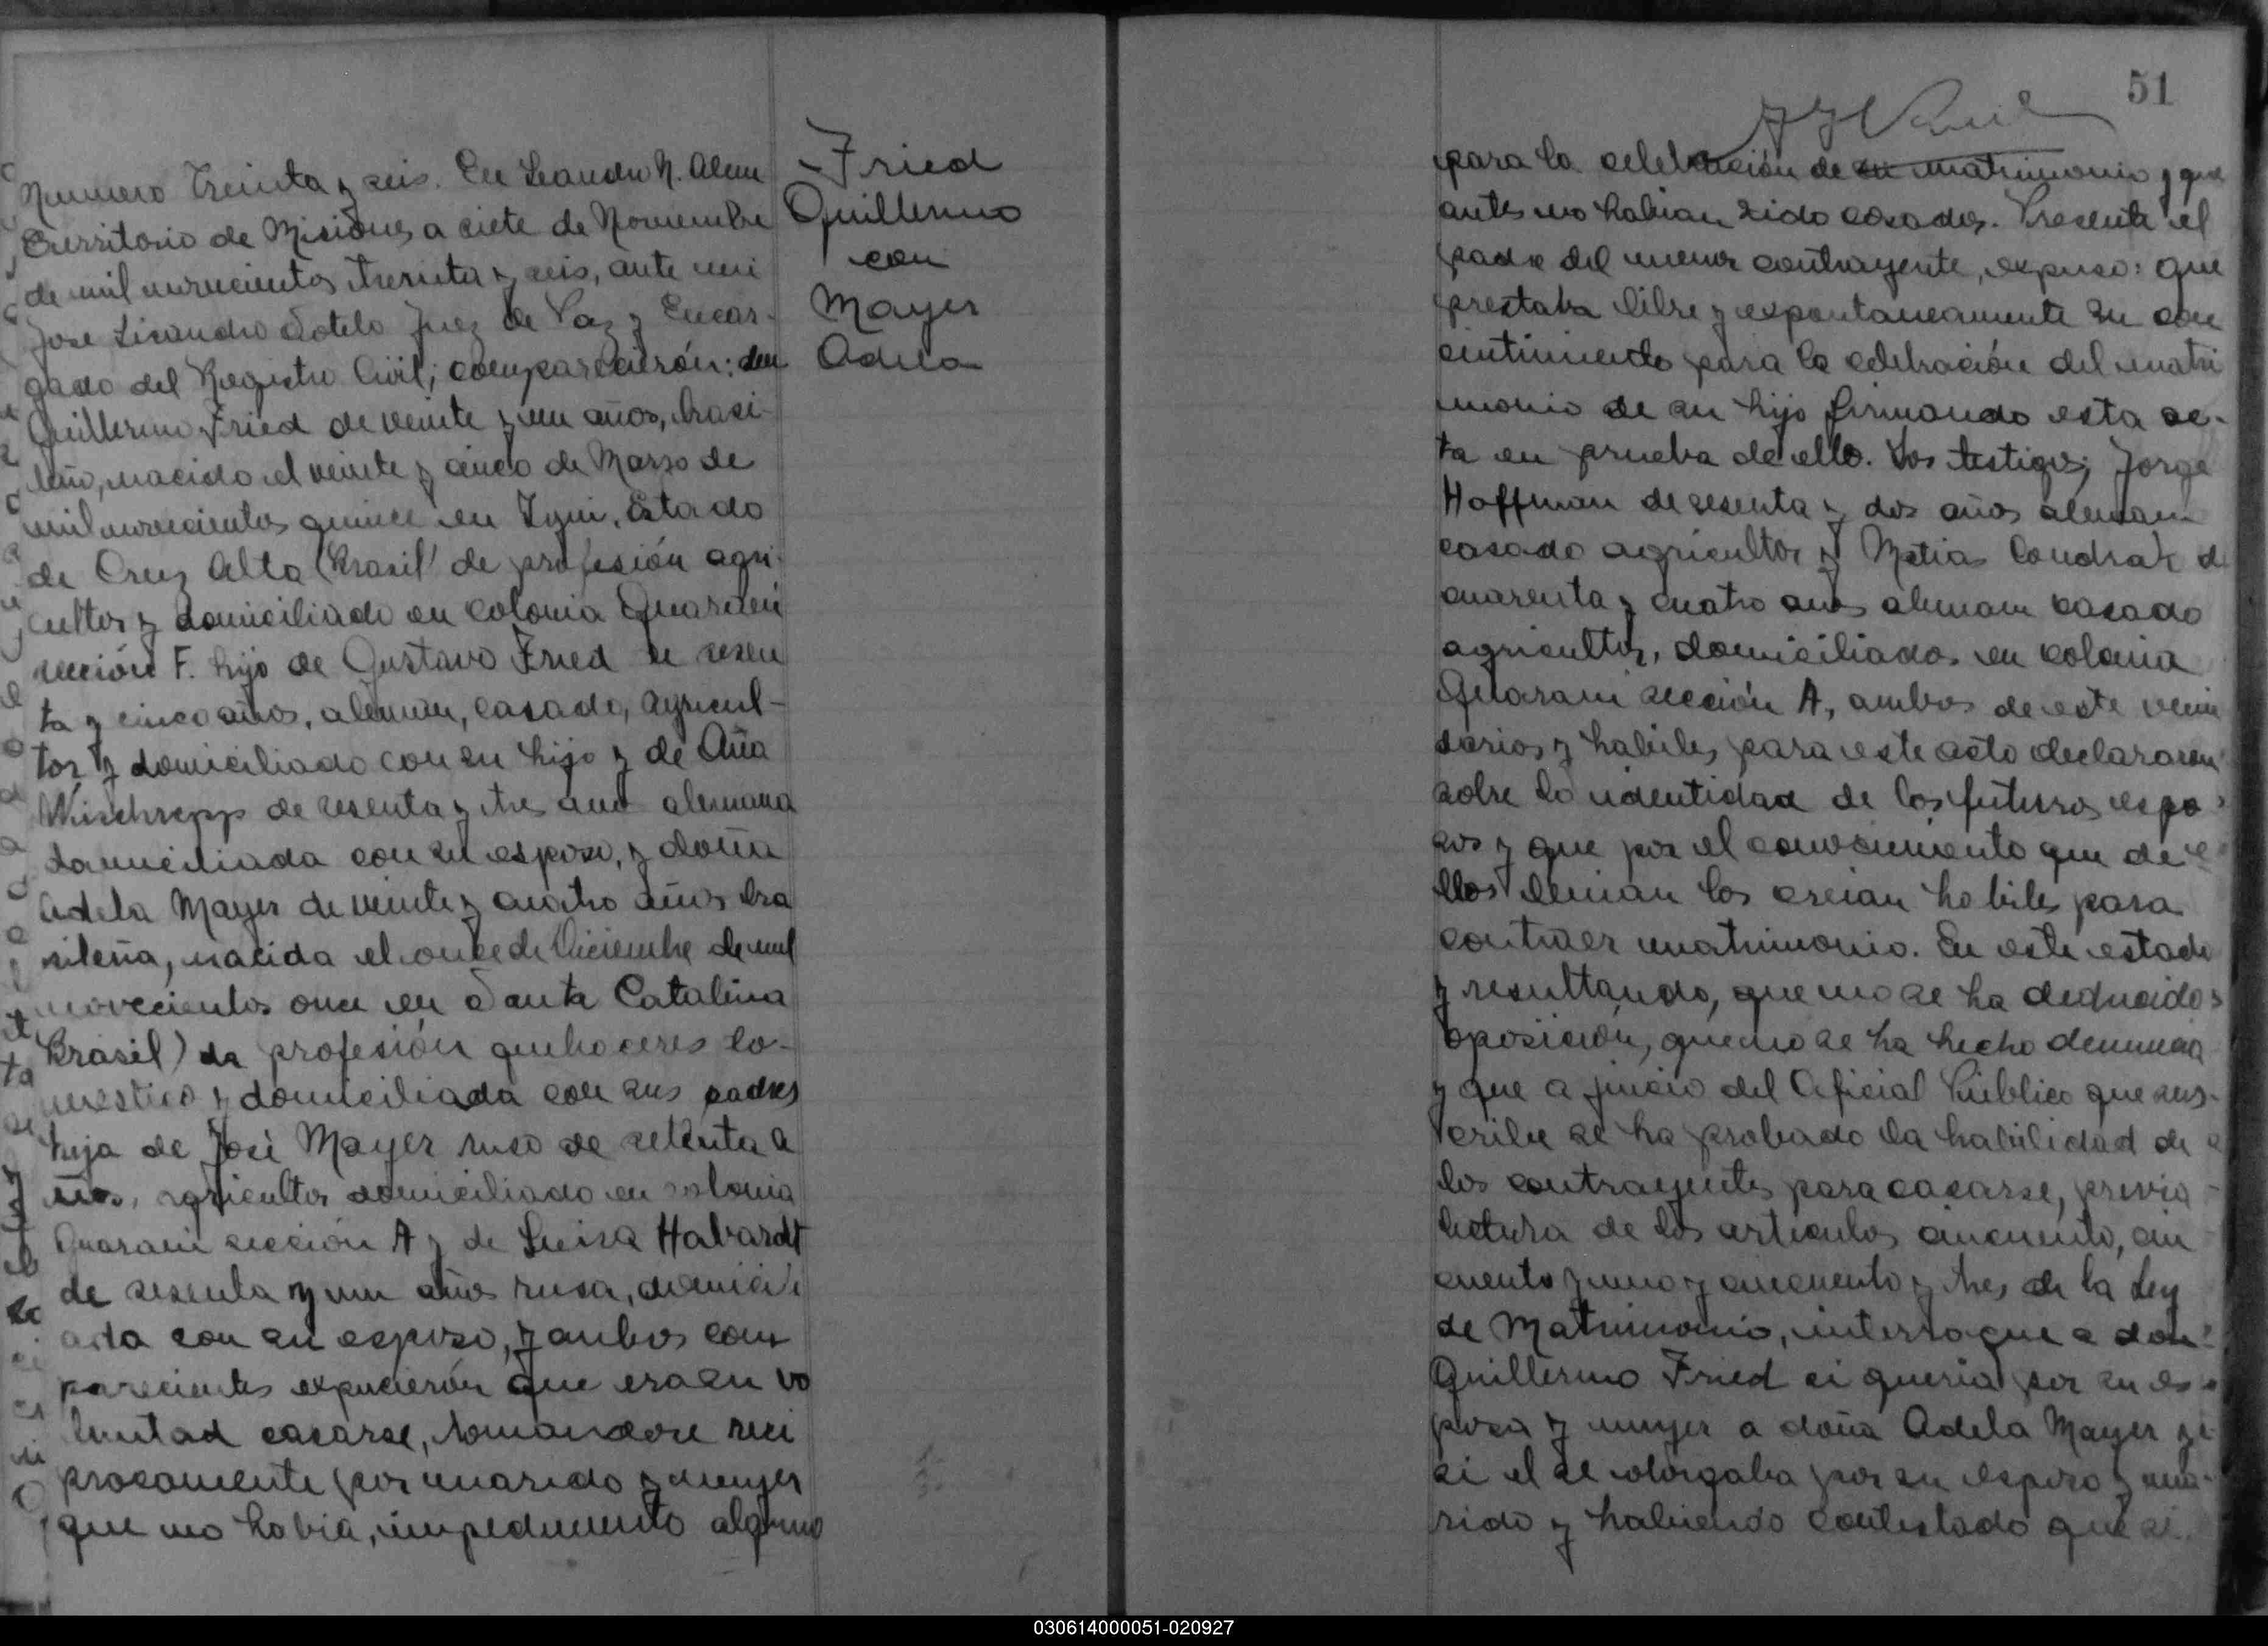 Numero Treinta y seis. En Leandro N. Alem
Territorio de Misiones a siete de Noviembre
de mil novecientos treinta y seis, ante mi
Jose Lisandro Sotelo Juez de Paz y Encar-
gado del Registro Civil; comparecierón: don
Guillermo Fried de veinte y un años, brasi-
leño, nacido el veinte y cinco de Marzo de
mil novecientos quince en Iyui, Estado
de Cruz Alta (Brasil) de profesión agri-
cultor y domiciliado en colonia Guarani
sección F. hijo de Gustavo Fried de sesen
ta y cinco años, aleman, casado, agricul-
tor y domiciliado con su hijo y de Aña
de sesenta y tres años alemana
domiciliada con su esposo, y doña
Adela Mayer de veinte y cuatro años bra
sileña, nacida el once de Diciembre de mil
novecientos once en Santa Catalina
Brasil) de profesión quehaceres do-
mestico y domiciliada con sus padres
hija de José Mayer ruso de setenta a
ños, agricultor domiciliado en colonia
Guarani sección A y de Luisa Habardt
de sesenta y un años rusa, domicili
ada con su esposo, y ambos com
parecientes expucierón que era su vo
luntad casarse, tomandose reci
procamente por marido y mujer
que no habia, impedimento alguno
Fried
Guillermo
con
Mayer
Adela
51
para la celebración de su matrimonio y que
antes no habian sido casados. Presente el
padre del menor contrayente, expuso: que
prestaba libre y expontaneamente su con
centimiento para la celebración del matri
monio de su hijo firmando esta ac-
ta en prueba de ello. Los testigos; Jorge
Hoffman de sesenta y dos años aleman
casado agricultor y Matias Condrat de
cuarenta y cuatro años aleman casado
agricultor, domiciliados en colonia
Guarani sección A, ambos de este vecin
darios y habiles para este acto declararon
sobre la identidad de los futuros espo
sos y que por el conocimiento que de e
llos tenian los creian habiles para
contraer matrimonio. En este estado
y resultando, que no se ha deducido
oposición, que no se ha hecho denuncia
y que a juicio del Oficial Público que sus-
cribe se ha probado la habilidad de
los contrayentes para casarse, previa
lectura de los articulos cincuenta, cin
cuenta y uno y cincuenta y tres de la Ley
de Matrimonio, interrogue a don
Guillermo Fried si queria por su es-
posa y mujer a doña Adela Mayer y
si el se otorgaba por su esposo y ma-
rido y habiendo contestado que si
030614000051-020927